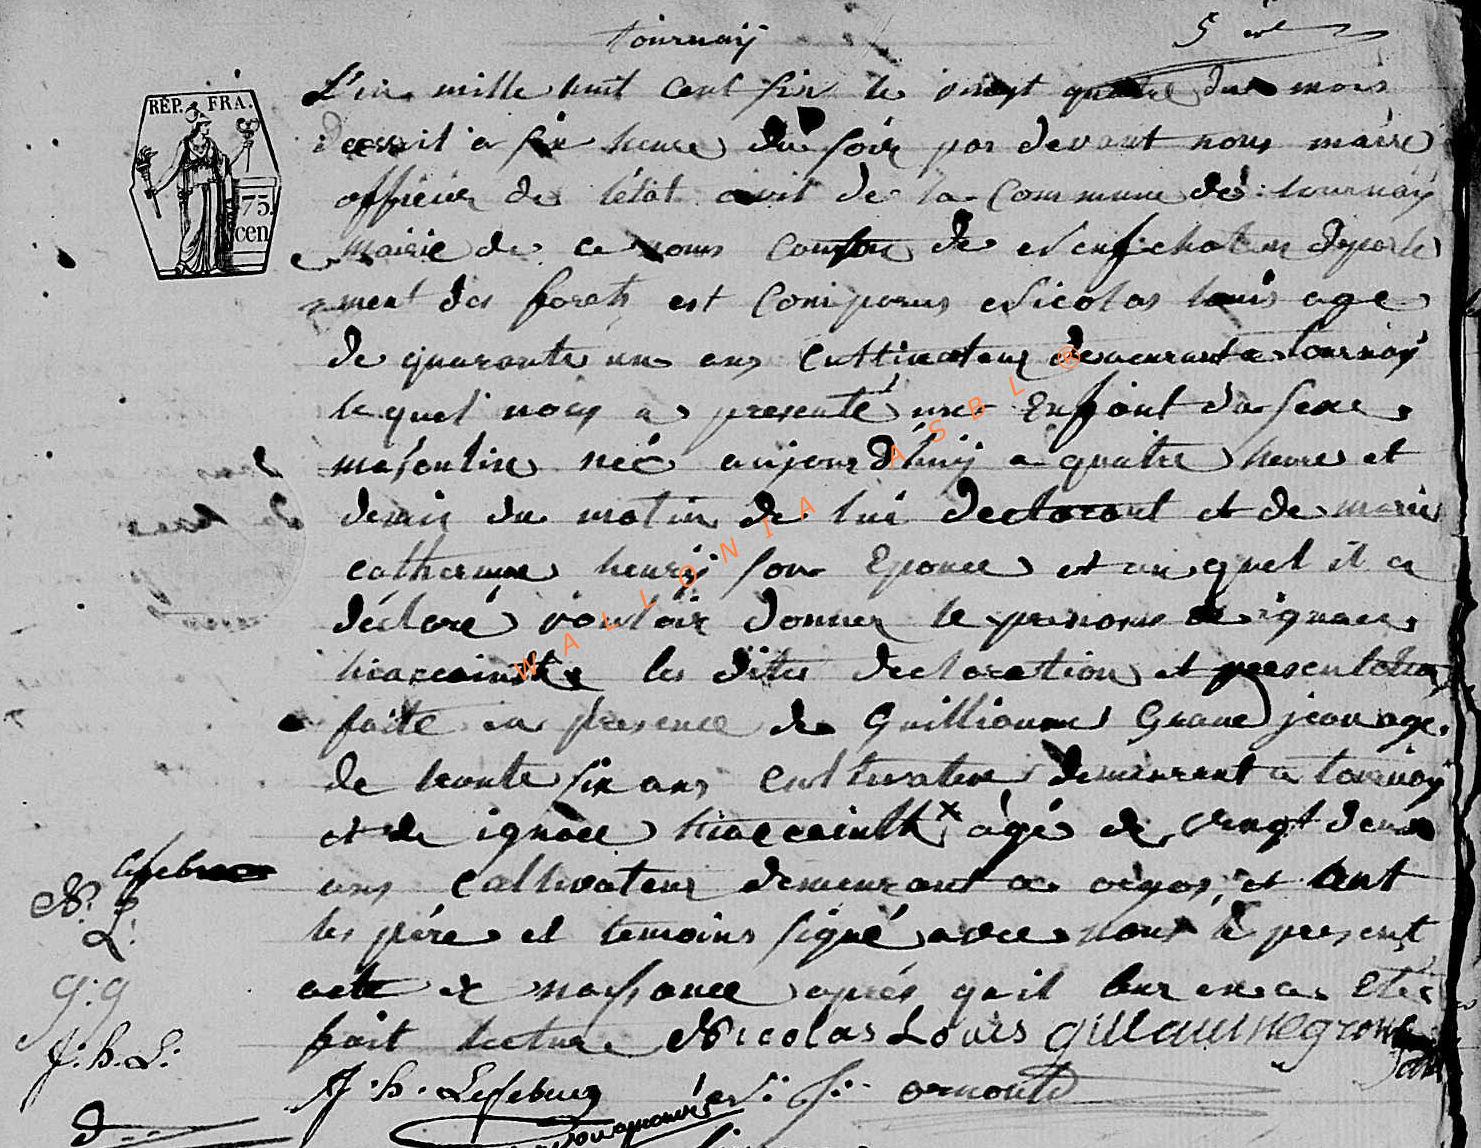 tournaÿ
REP. FRA.
75.
cen
L'an mille huit cent six le vingt quatre du mois
davril a six heure du soir par devant nous maire
officier de létat civil de la Commune de tournaÿ
mairie de ce nom Canton de Neufchateau departe
ment des forets est Comparus Nicolas louis age
de quarante un ans Cultivateur demeurant a tournaÿ
le quel nous a presenté une Enfant du sexe
masculin néé aujourd'huÿ a quatre heure et
demie du matin de lui declarant et de marie
catherine henrÿ son Epouce et au quel il a
déclaré vouloir donner le prenoms de ignace
hiacceinthe les dites declaration et presentation
faite en presence de Guilliaume Grand jean age
de trente six ans cultivateur demeurant a tournaÿ
et de ignace hiacceinth x agé de vingt deux
ans Cultivateur demeurant a et ont
les pére et temoins signé avec nous le present
acte de naissance aprés qu'il leur en a Eté
fait lecture Nicolas Louis Gillaume grand
jean
J. h. Lefebure
lefebure
N.
L.
g. g
J. h. L.
WALLONIA ASBL ®